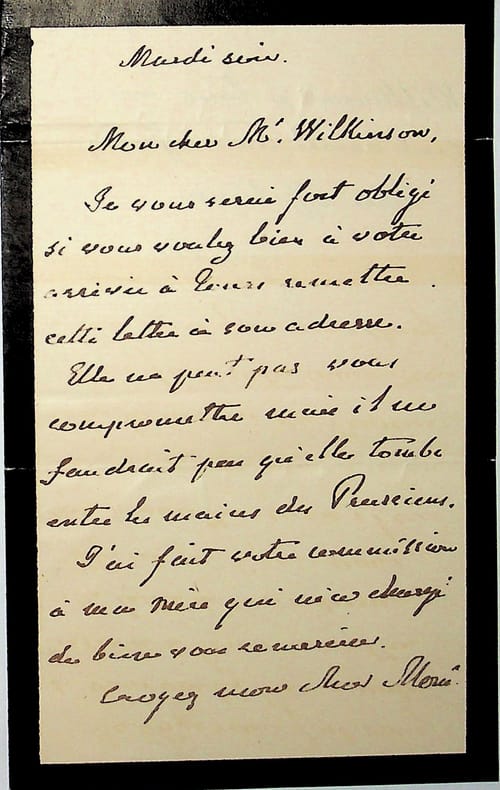 Mardi soir.
Mon cher Mr. Wilkinson,
Je vous serai fort obligé
si vous voulez bien à votre
arrivée à Tours remettre
cette lettre à son adresse.
Elle ne peut pas vous
compromettre mais il ne
faudrait pas qu'elle tombe
entre les mains des Prussiens.
J'ai fait votre commission
à ma mère qui m'a chargé
de bien vous remercier.
Croyez mon cher Monsr